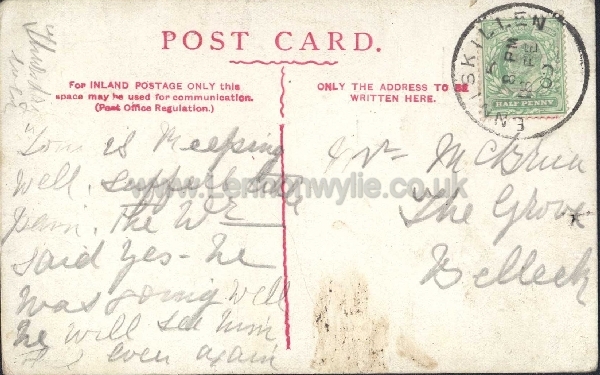 POST CARD.
For INLAND POSTAGE ONLY this
space may be used for communication.
(Post Office Regulation.)
ONLY THE ADDRESS TO BE
WRITTEN HERE.
ENNISKILLEN
8 PM
FE
09
HALF PENNY
is keeping
well.
pain. The Dr
said yes - he
was going well
he will see him
even again
www.lennonwylie.co.uk
The Grove
Belleek